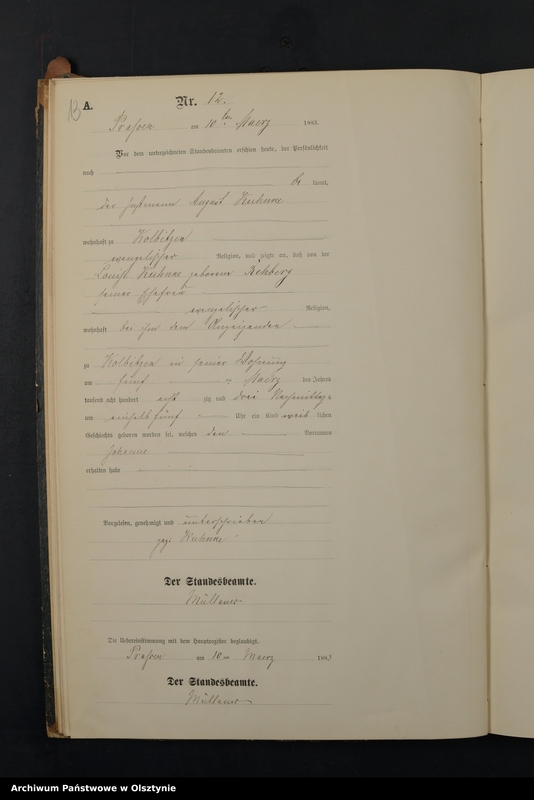 13 A.
Nr. 12.
am 10ten Maerz 1883.
Vor dem unterzeichneten Standesbeamten erschien heute, der Persönlichkeit
nach
be kannt,
der August Kuhnke
wohnhaft zu Kolbitzen
evangelischer Religion, und zeigte an, daß von der
Louise Kuhnke geborene Rehberg
seiner Ehefrau
evangelischer Religion,
wohnhaft bei ihm dem Anzeigenden
zu Kolbitzen in seiner Wohnung
am fünf ten Maerz des Jahres
tausend acht hundert acht zig und drei Nachmittags
um einhalb fünf Uhr ein Kind weib lichen
Geschlechts geboren worden sei, welches den Vornamen
Johanne
erhalten habe
Vorgelesen, genehmigt und unterschrieben
gez. Kuhnke
Der Standesbeamte.
Die Uebereinstimmung mit dem Hauptregister beglaubigt.
am 10ten Maerz 1883
Der Standesbeamte.
Archiwum Państwowe w Olsztynie